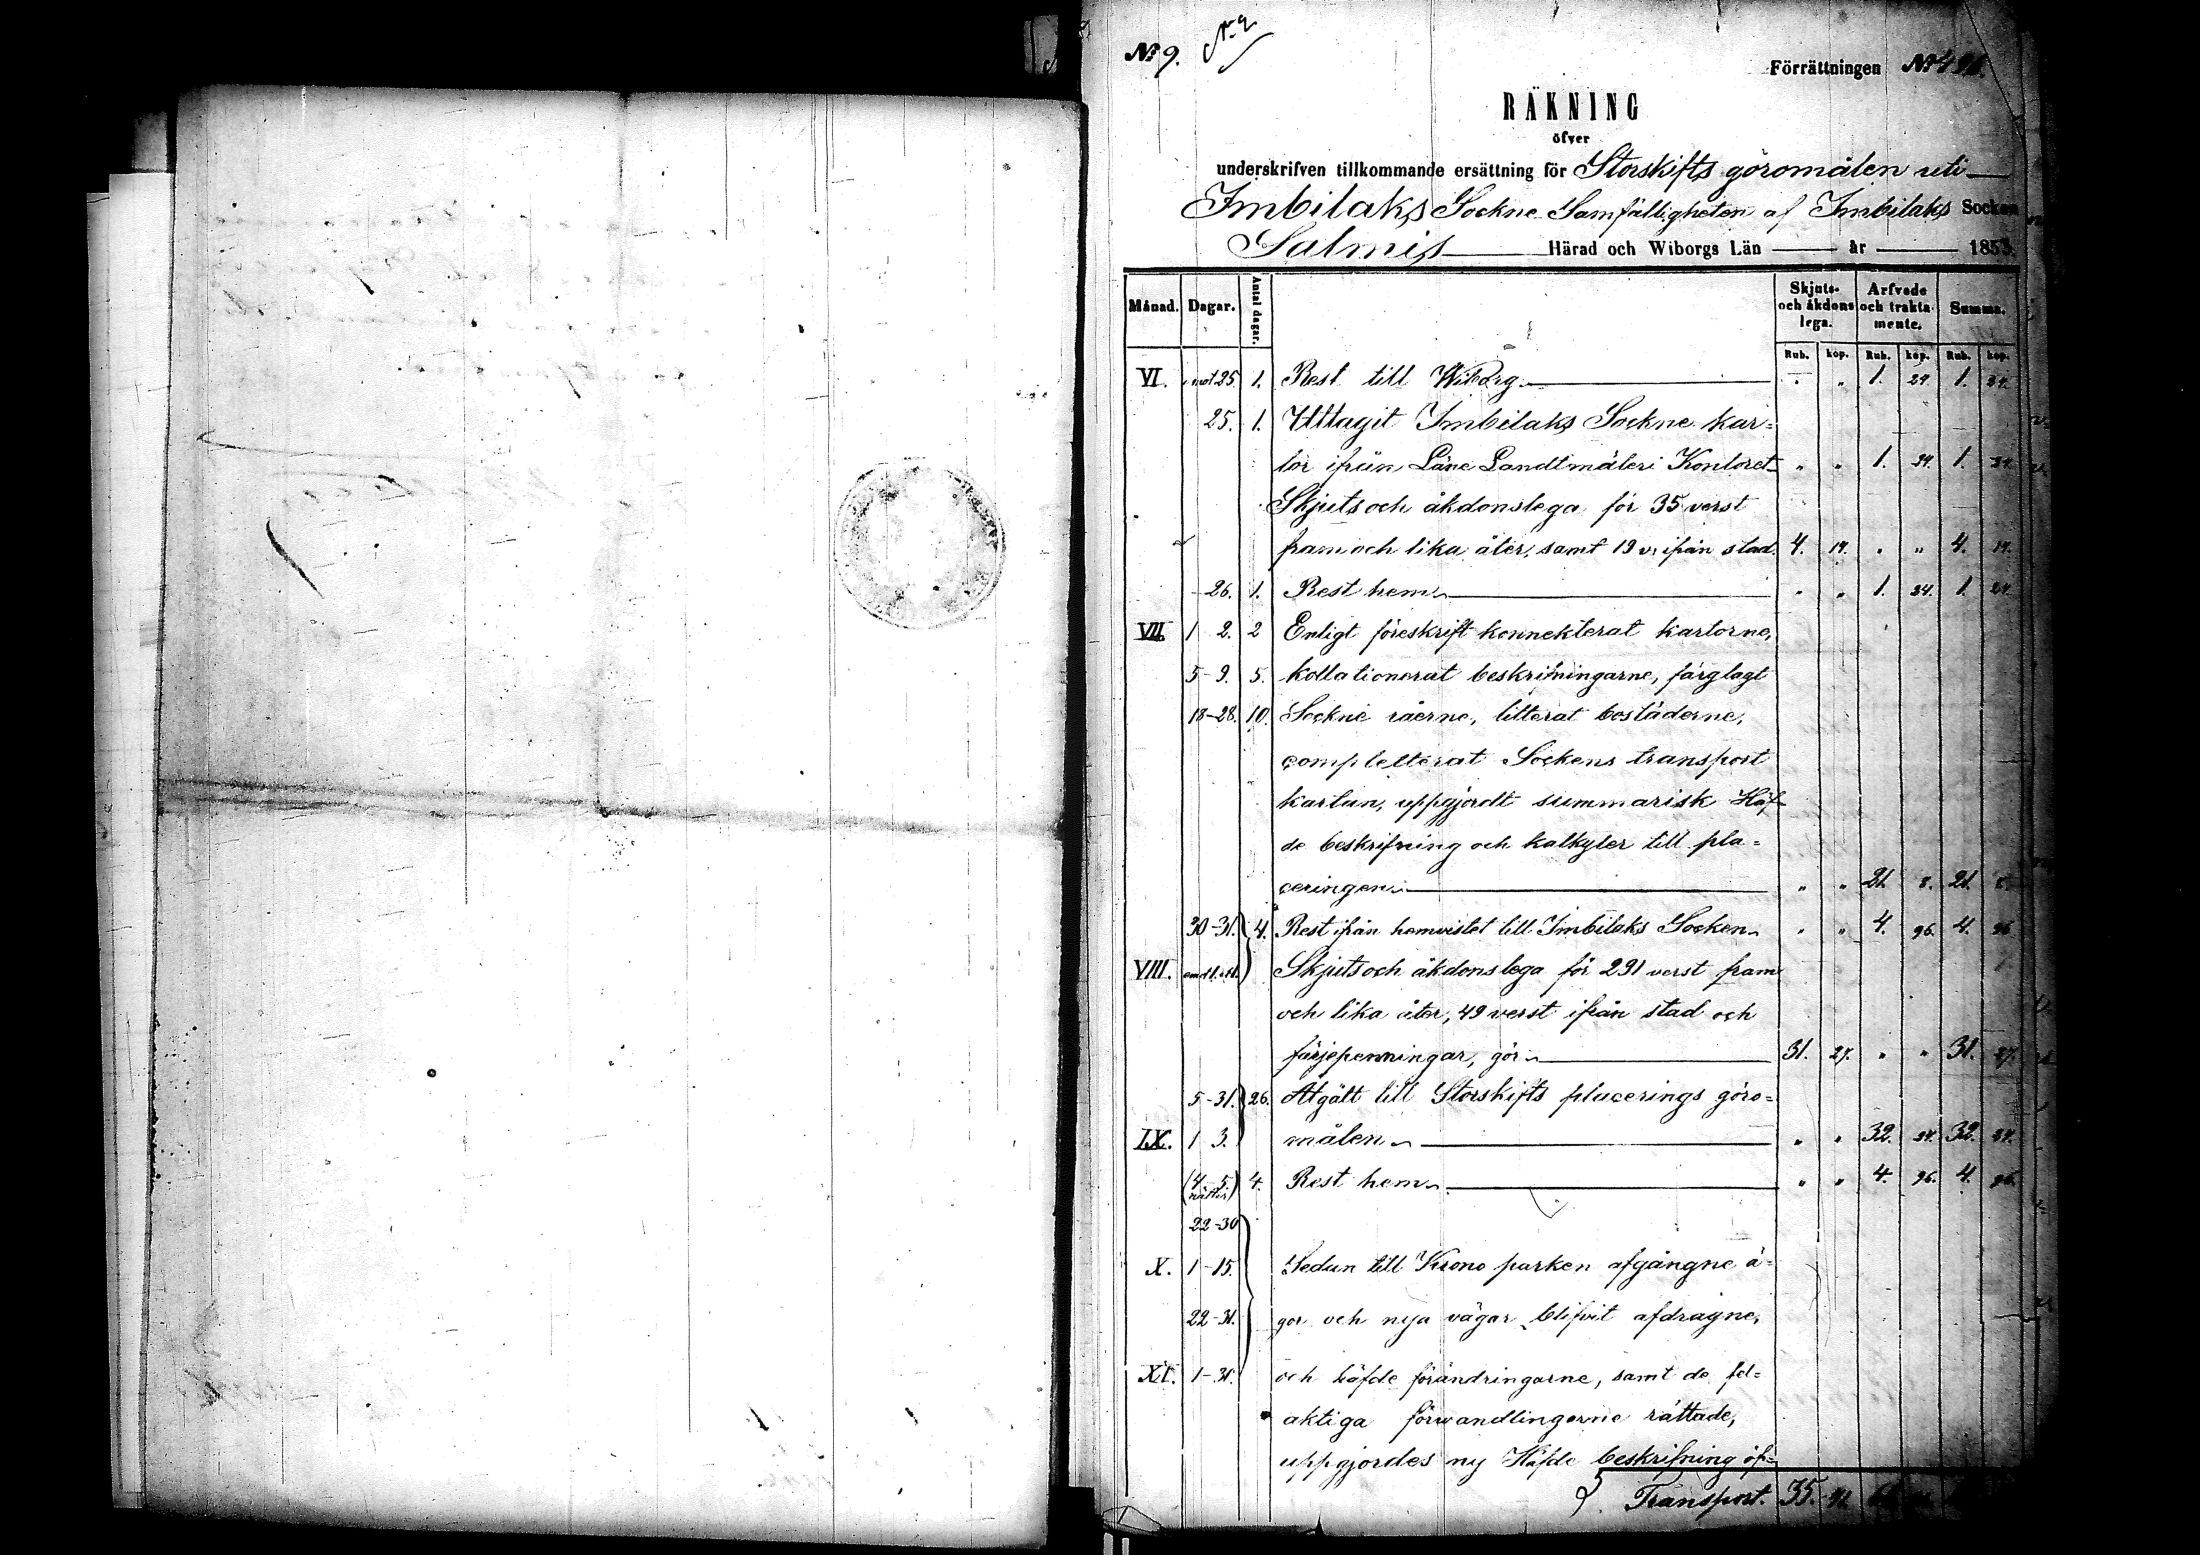 No 9. No 2
Förrättningen No
RÄKNING
öfver
underskrifven tillkommande ersättning för Storskifts göromålen uti
Imbilaks Sockne Samfälligheten af Imbilaks Socken
Salmis Härad och Wiborgs Län år 1855
Månad. Dagar. Antal dagar. Skjuts- och åkdons lega. Arfvode och traktamente. Summa.
Rub. kop. Rub. kop. Rub. kop.
VI. 25. 1. Rest till Wiborg " " 1. 24. 1. 24.
25. 1. Uttagit Imbilaks Sockne kar=
tor ifrån Läne Landtmäteri Kontoret " " 1. 24. 1. 24.
Skjuts och åkdonslega för 35 verst
fram och lika åter, samt 19 v. ifrån stad. 4. 14. " " 4. 14.
26. 1. Rest hem " " 1. 24. 1. 24.
VII. 1 2. 2 Enligt föreskrift konnekterat kartorne,
5-9. 5. kollationerat beskrifningarne, färglagt
18-28. 10. Sockne råerne, litterat bostäderne,
completterat Sockens transport
kartan, uppgjordt summarisk Häf-
de beskrifning och kalkyler till pla=
ceringen " " 21. 8. 21. 8.
30-31. 4. Rest ifrån hemvistet till Imbilaks Socken " " 4. 96. 4. 96
VIII. Skjuts och åkdons lega för 291 verst fram
och lika åter, 49 verst ifrån stad och
färjepenningar, gör 31. 27. " " 31. 27.
5-31. 26. Åtgått till Storskifts placerings göro=
IX. 1 3. målen " " 32. 24. 32. 24.
(4-5) 4. Rest hem " " 4. 96. 4. 96.
nätter
22-30
X. 1-15. Sedan till Krono parken afgångne ä=
22-31. gor och nya vägar blifvit afdragne,
XI. 1-31. och häfde förändringarne, samt de fel=
aktiga förvandlingarne rättade,
uppgjordes ny Häfde beskrifning öf=
Transport. 35. 41